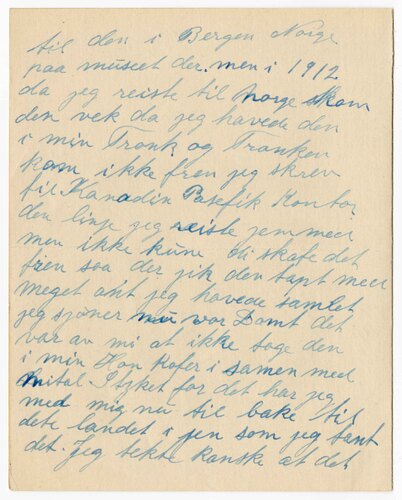 til den i Bergen Norge
paa museet der. men i 1912
da jeg reiste til Norge skom
den vek da jeg havede den
i min Tronk og Tronken
kom ikke fren jeg skrev
til Kanadin Pasefik Kontor
den linje jeg reiste jemmeed
men ikke kune di skafe det
fren saa der jik den tapt meed
meget ant jeg havede samlet
jeg sjøner nu vor Domt det
var av mi at ikke toge den
i min Hon Kofer i samen med
Mital Stzket for det har jeg
med mig nu til bake til
dete landet i jen som jeg fant
det. Jeg tekte kanske at det